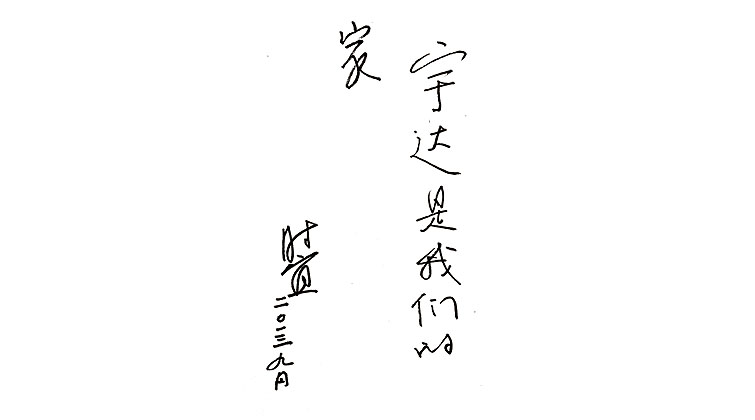 宇达是我们的
家
时宜
二〇一三九月